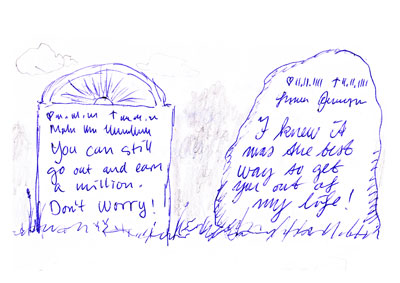 You can still
go out and earn
a million.
Don't worry!
I knew it
was the best
way to get
you out of
my life!